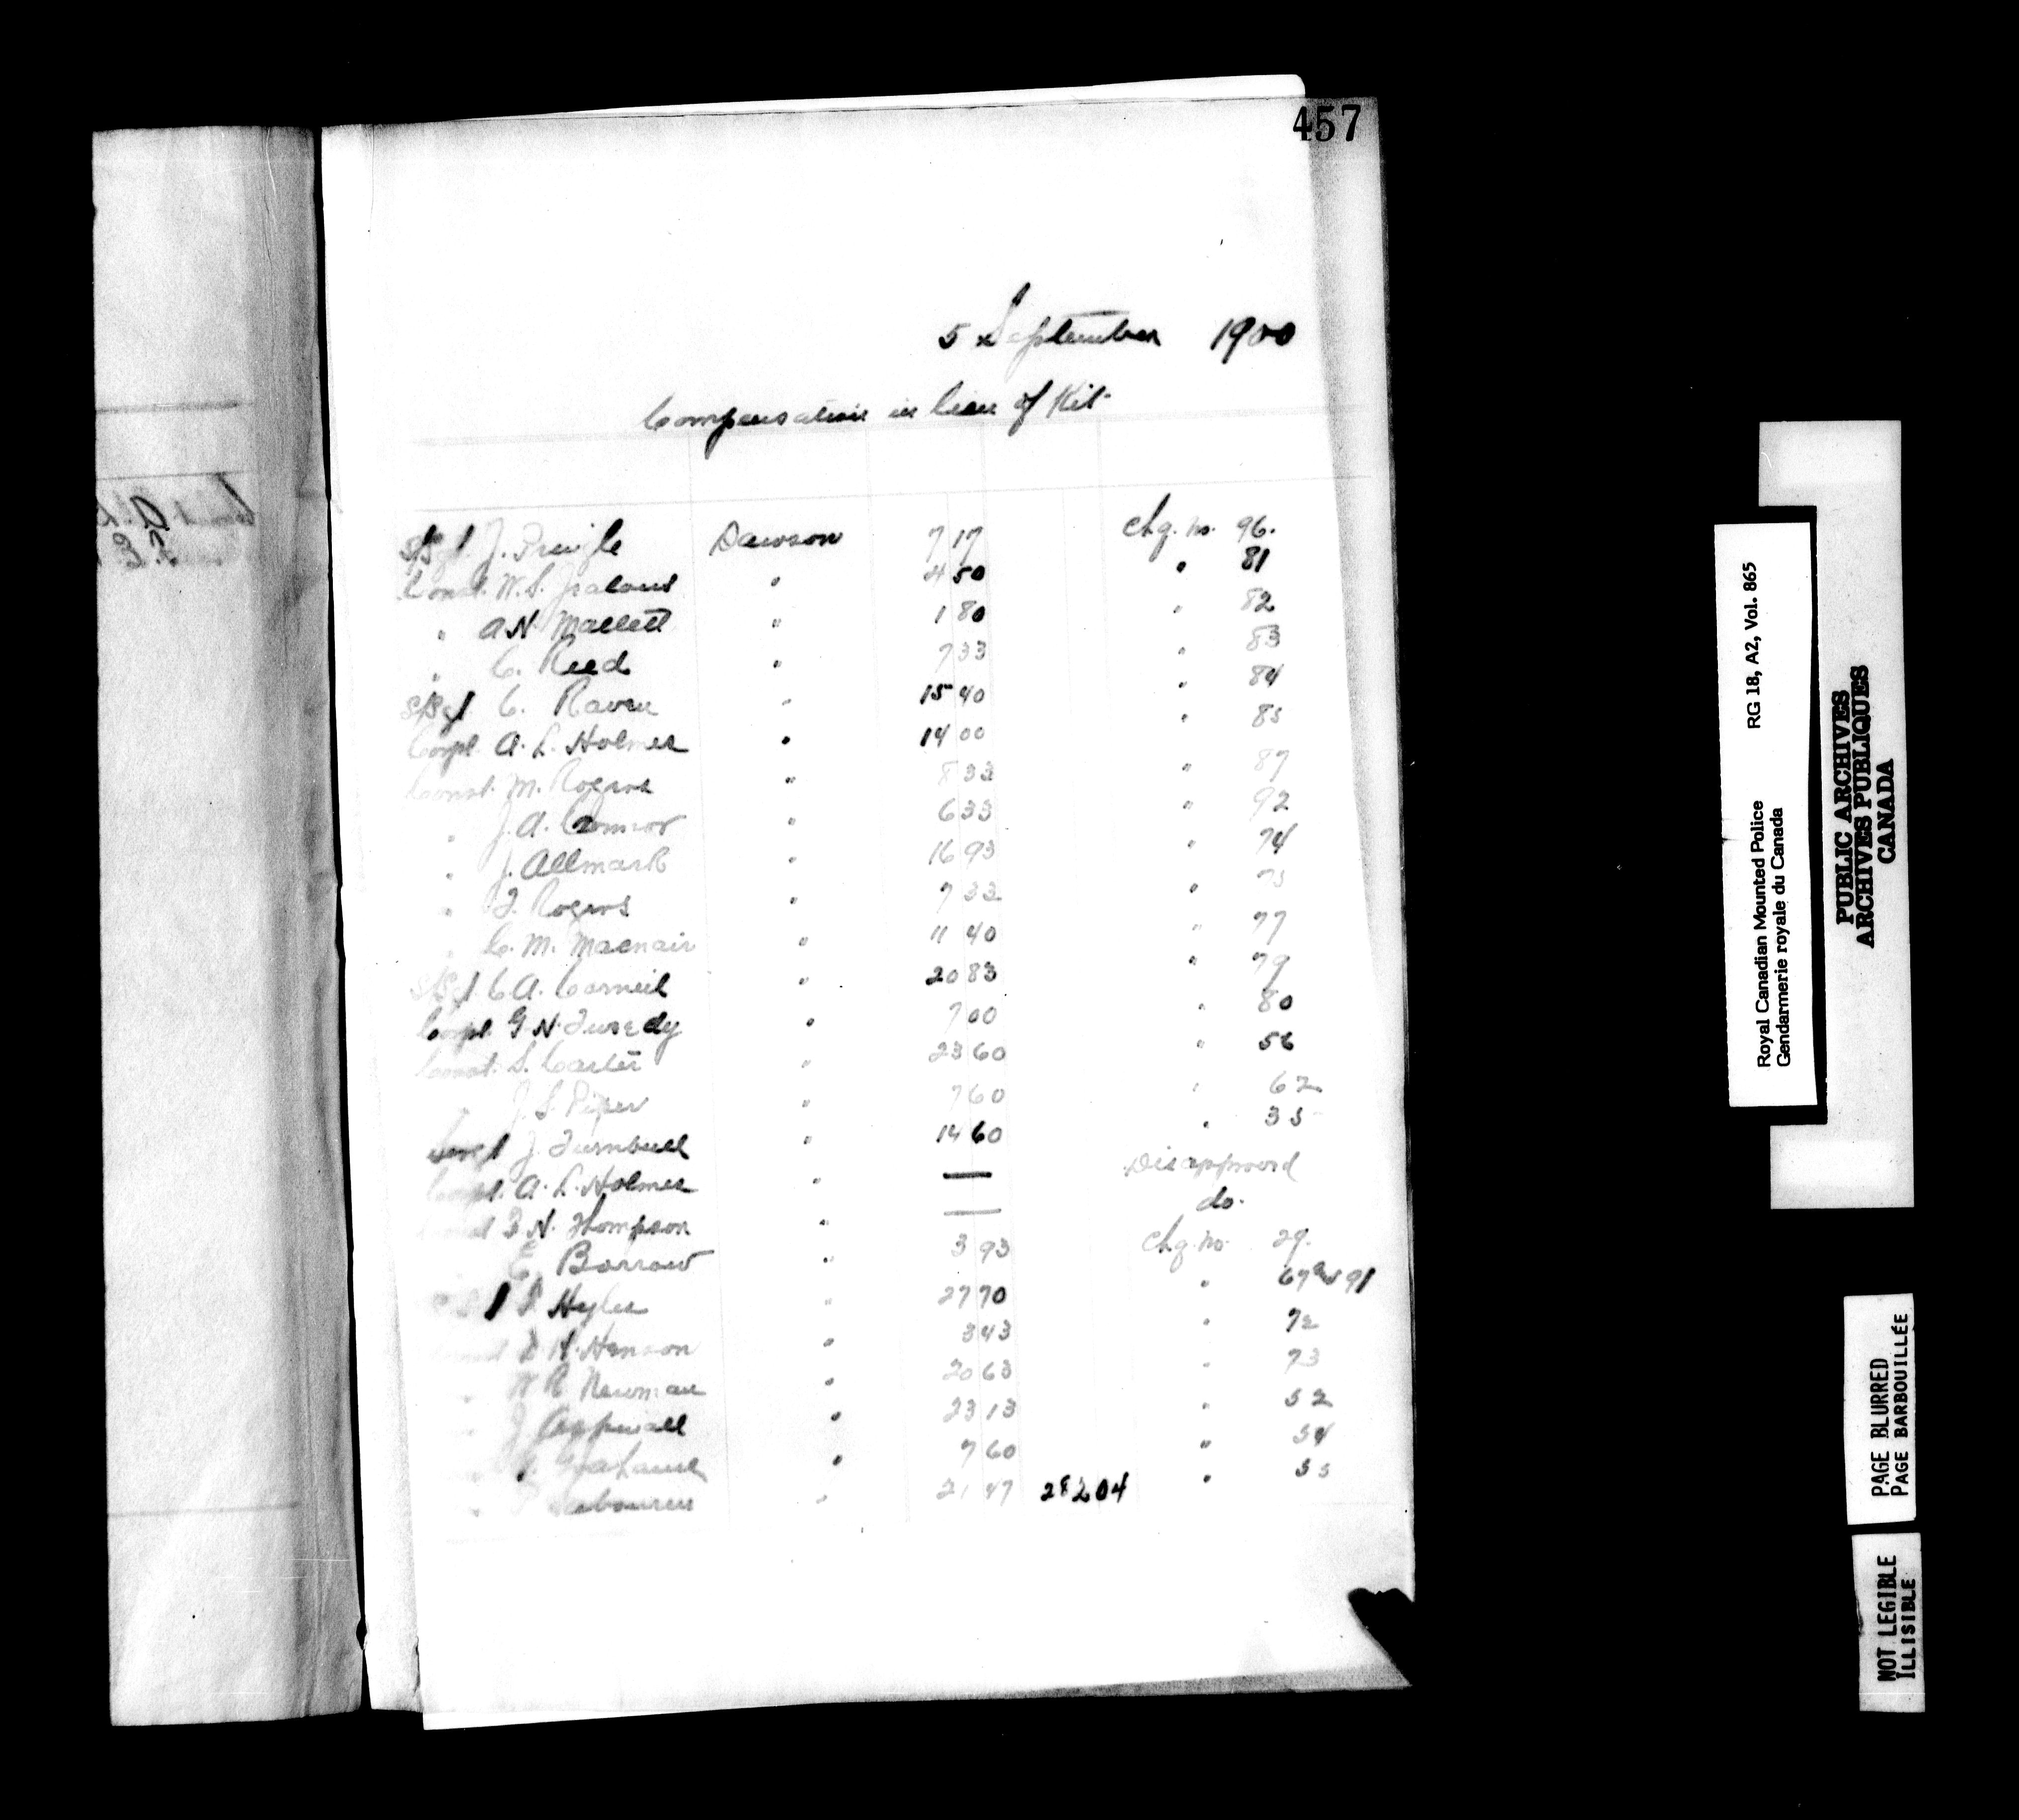 457
5 September 1900
Compensation in lieu of Kit
S/Sgt. J. Pringle Dawson 7 17 Chq. no. 96.
Const. W. S. Jealous " 4 50 " 81
" A N Mallett " 1 80 " 82
" C. Reed " 7 33 " 83
S/Sgt C. Raven " 15 40 " 84
Corpl. A. L. Holmes " 14 00 " 85
Const. M. Rogers " 8 33 " 87
" J. A. Connor " 6 33 " 92
" J. Allmark " 16 93 " 74
" J. Rogers " 7 33 " 75
" C. M. Macnair " 11 40 " 77
S/Sgt C. A. Corneil " 20 83 " 79
Corpl. G N. Tweedy " 7 00 " 80
Const. S. Carter " 23 60 " 56
" J. S. Piper " 7 60 " 62
Sergt J. Turnbull " 14 60 " 35
Corpl. A. L. Holmes " — Disapproved
Const F. N. Thompson " — do.
E. Barrow " 3 93 Chq. no. 29.
Hyles " 27 70 " 67 and 91
Const H. Henson " 3 43 " 72
" W R Newman " 20 63 " 73
" J. Aspinall " 23 13 " 52
" Grahame " 7 60 " 54
" " 21 47 282 04 " 55
Royal Canadian Mounted Police RG 18, A2, Vol. 865
Gendarmerie royale du Canada
PUBLIC ARCHIVES
ARCHIVES PUBLIQUES
CANADA
PAGE BLURRED
PAGE BARBOUILLÉE
NOT LEGIBLE
ILLISIBLE